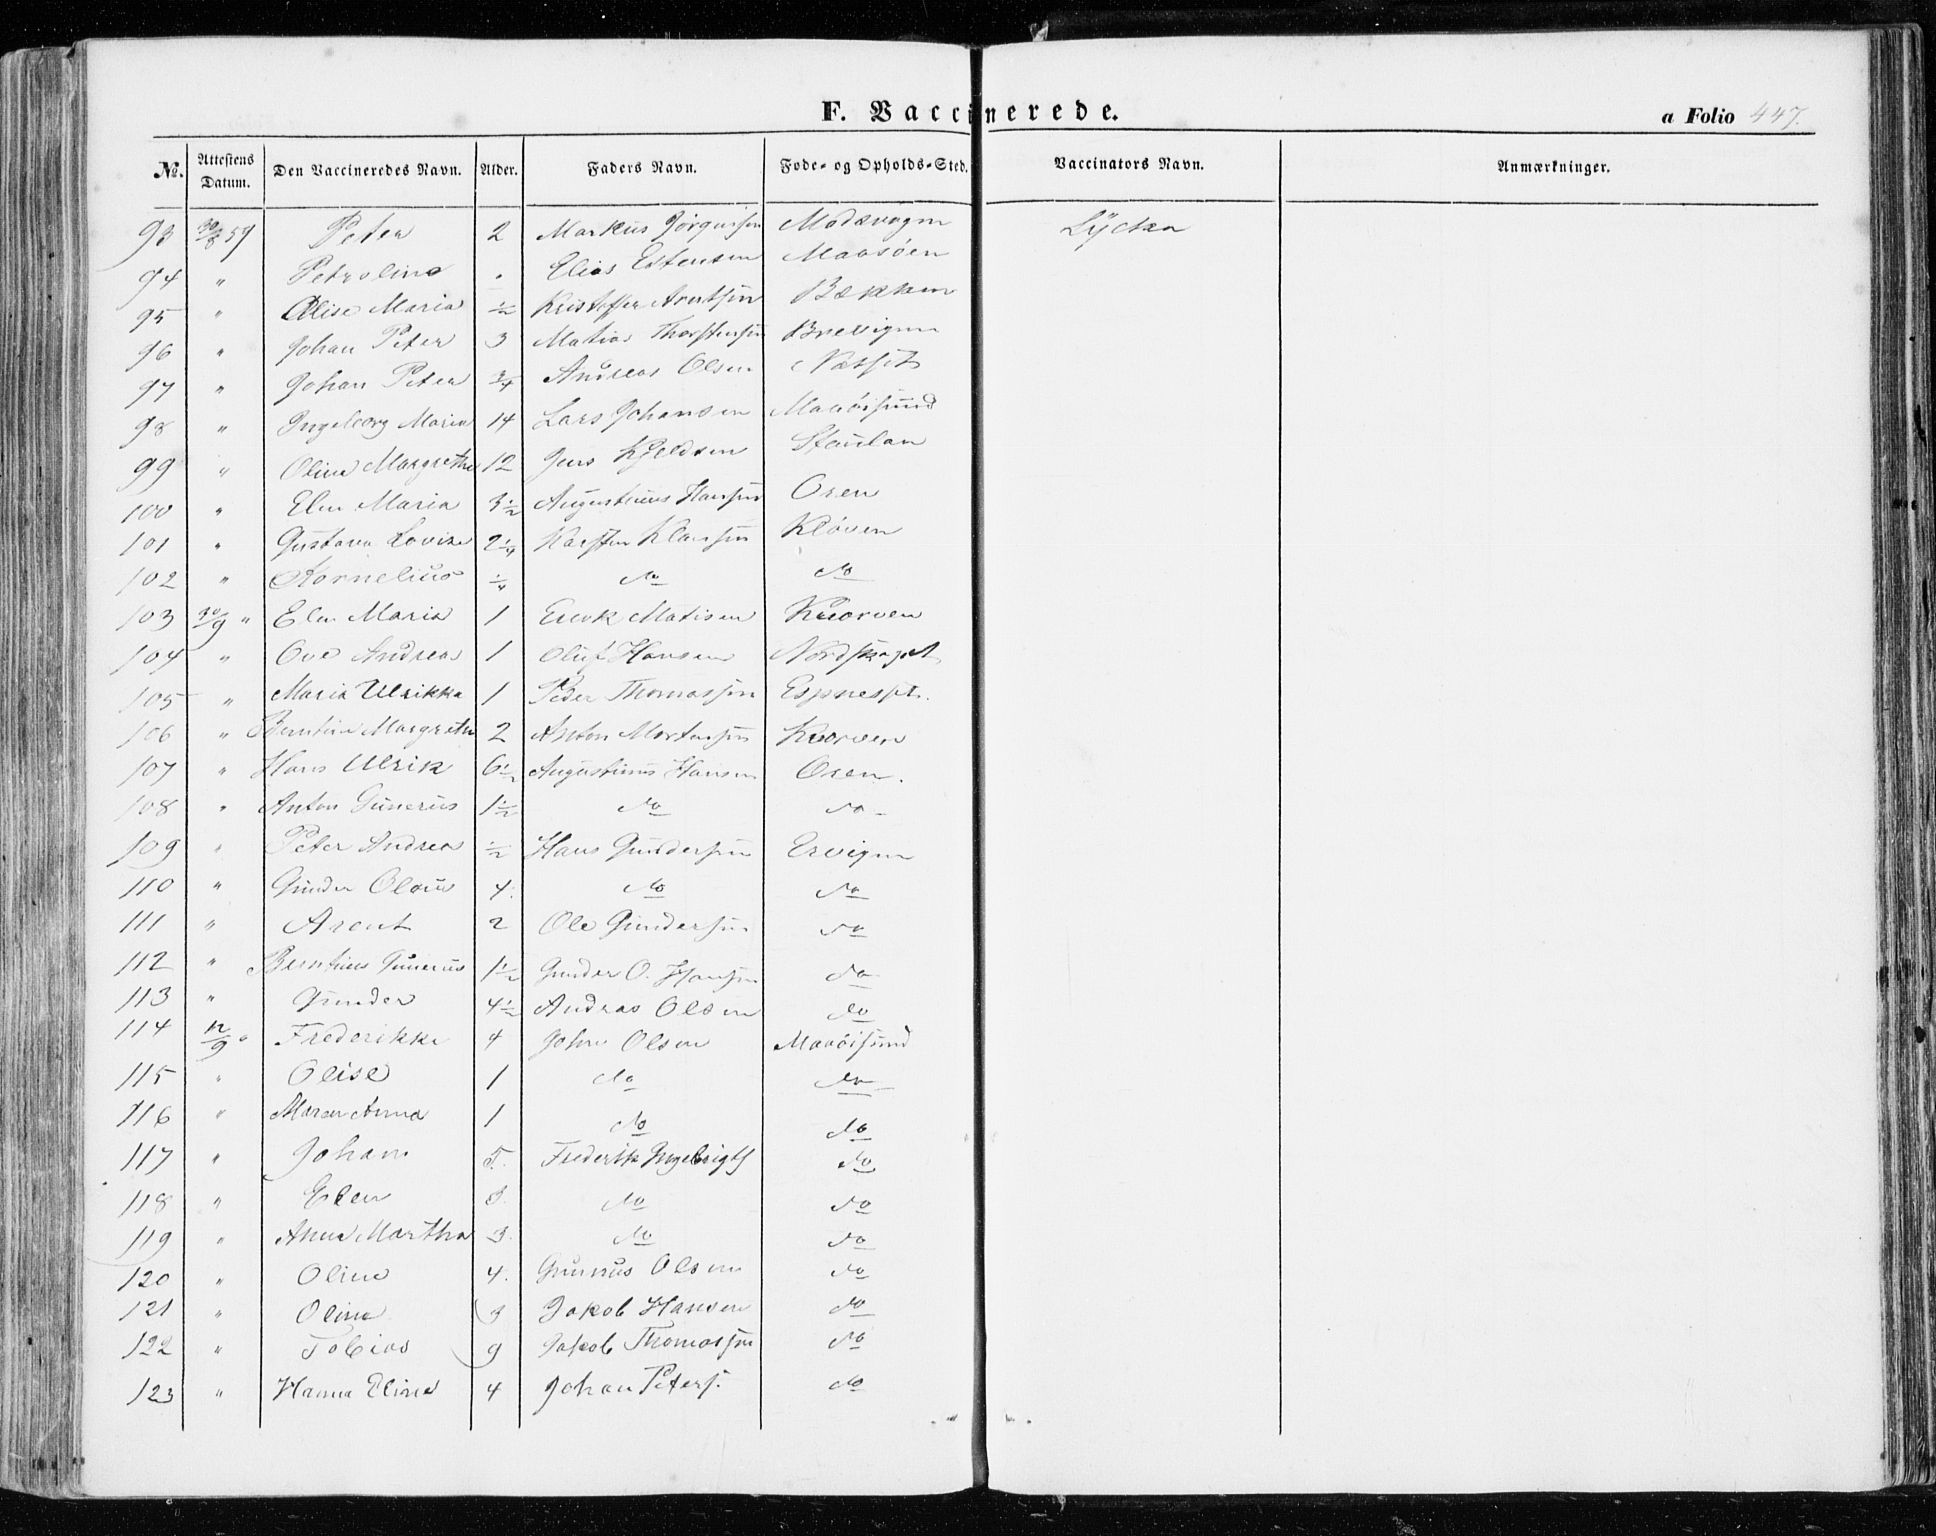 F. Vaccinerede.
a Folio 447.
No. Attestens Datum. Den Vaccineredes Navn. Alder. Faders Navn. Føde- og Opholds-Sted. Vaccinators Navn. Anmærkninger.
93 30/8 59 Peter 2 Markus Jørgensen Lycka
94 " Petroline " Elias Estensen Maasøen
95 " Olise Maria 1/2 Kristoffer Arentsen Bækken
96 " Johan Peter 3 Matias Thorstensen Brevigen
97 " Johan Peter 3/4 Andreas Olsen Næsset
98 " Ingeborg Maria 14 Lars Johansen Maaøisund
99 " Oline Margrethe 12 Jens Kjeldsen Staulan
100 " Elen Maria 3 1/2 Augustinus Hansen Osen
101 " Gustava Lovise 2 1/4 Karsten Klausen Kløven
102 " Kornelius 1/4 do do
103 30/9 " Elen Maria 1 Erik Matisen Kuorven
104 " Ove Andreas 1 Oluf Hansen Nordskaget
105 " Maria Ulrikka 1 Peder Thomassen Espnesset.
106 " Berntine Margrethe 2 Anton Mortensen Kuorven
107 " Hans Ulrik 6 1/2 Augustinus Hansen Osen.
108 " Anton Gunerus 1 1/2 do do
109 " Peter Andrea 1/2 Hans Gundersen Ervigen
110 " Gunder Olaus 4. do do
111 " Arent 2 Ole Gundersen do
112 " Berntinus Gunerius 1 1/2 Gunder O. Hansen do
113 " Gunder 4 1/2 Andras Olsen do
114 12/9 " Frederikke 4 John Olsen Maaøisund
115 " Olise 1 do do
116 " Maren Anna 1 do do
117 " Johan 5. Frederik Ingebrigts do
118 " Elen 3. do do
119 " Anne Martha 3. do do
120 " Oline 4. Gunnus Olsen do
121 " Oline 3 Jakob Hansen do
122 " Tobias 9 Jakob Thomassen do
123 " Hanna Eline 4 Johan Peters. do